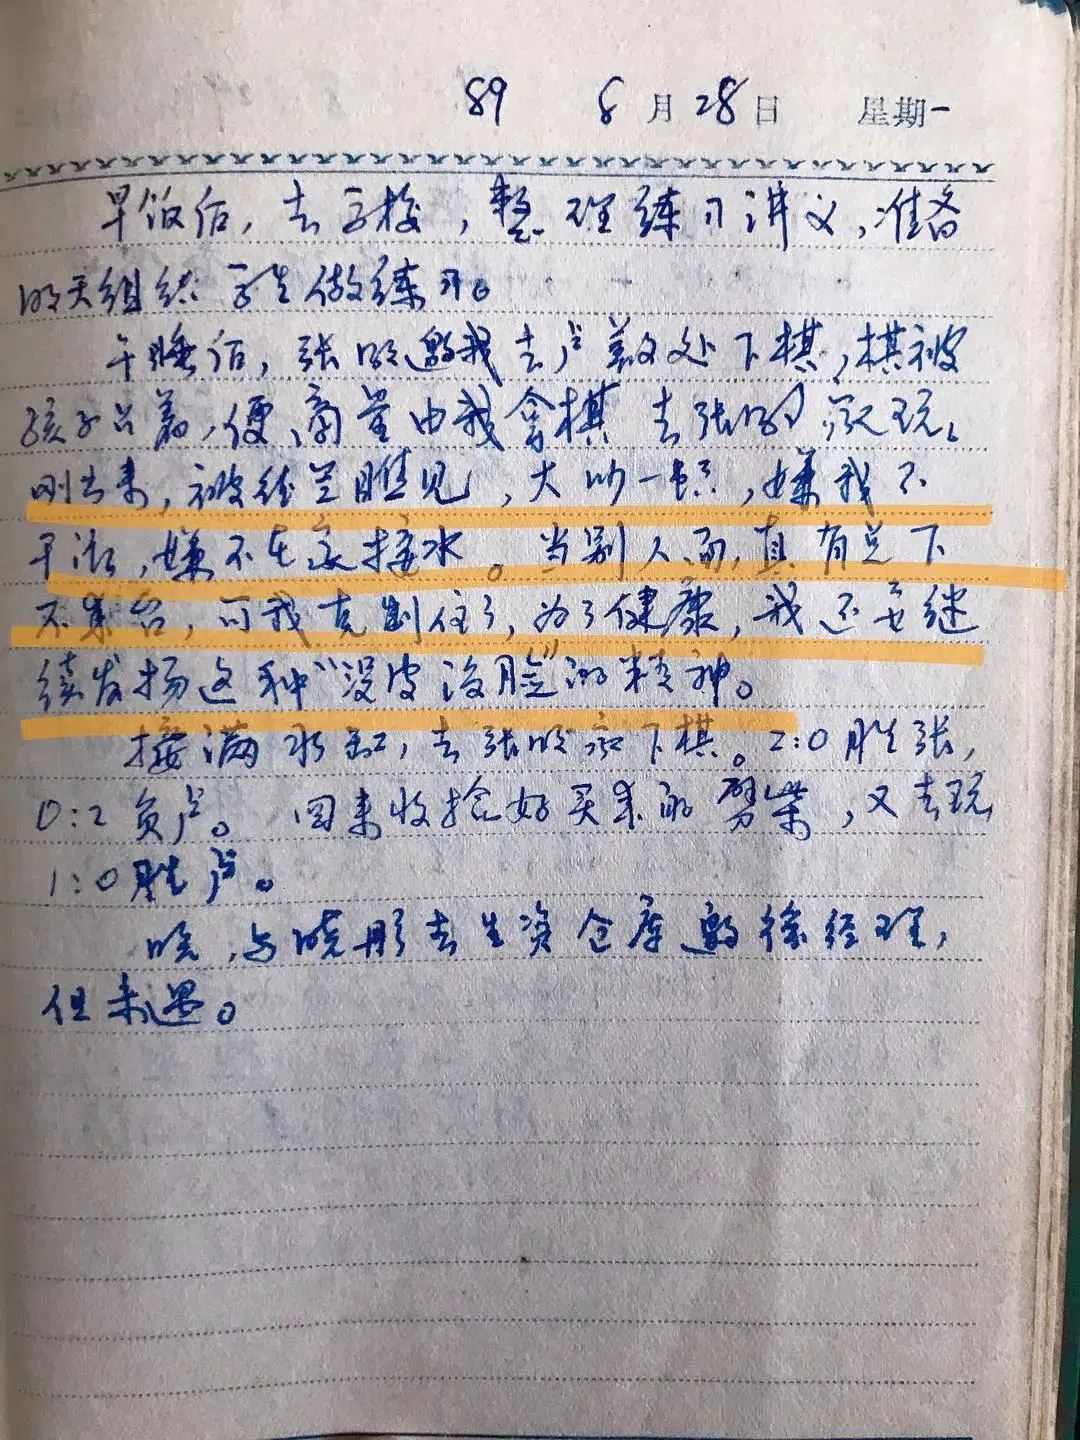 89 8月28日 星期一
早饭后，去学校，整理练习讲义，准备
明天组织学生做练习。
午睡后，张明邀我去卢处下棋，棋被
孩子占着，便商量由我拿棋去张明家玩。
刚出来，被桂兰瞧见，大吵一顿，嫌我不
干活，嫌不在家接水。当别人面，真有点下
不来台，可我克制住了，为了健康，我还要继
续发扬这种“没皮没脸”的精神。
接满水缸，去张明家下棋。2:0胜张，
0:2负卢。回来收拾好买来的劈柴，又去玩
1:0胜卢。
晚，与晓彤去生资仓库邀徐经理，
但未遇。